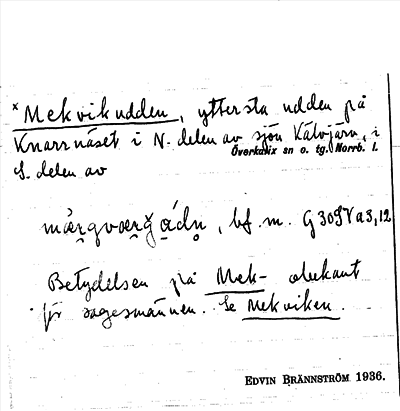 x Mekvikudden, yttersta udden på
Knarrnäset i N. delen av sjön Kälvjärv, i
S. delen av Överkalix sn o. tg. Norrb. l.
bf. m.
Betydelsen på Mek- obekant
för sagesmännen. Se Mekviken.
EDVIN BRÄNNSTRÖM 1936.